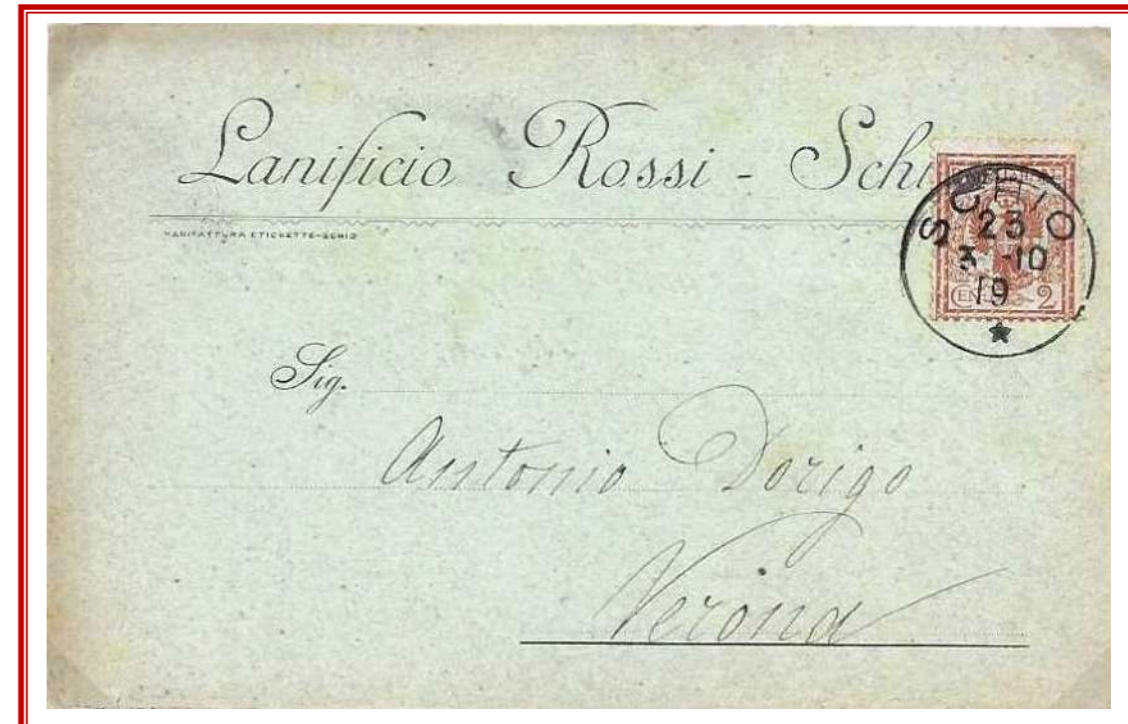 Lanificio Rossi - Schi
MANIFATTURA ETICHETTE-SCHIO
SCHIO
23
3 -10
19
CENT. 2
Sig.
Antonio Dorigo
Verona